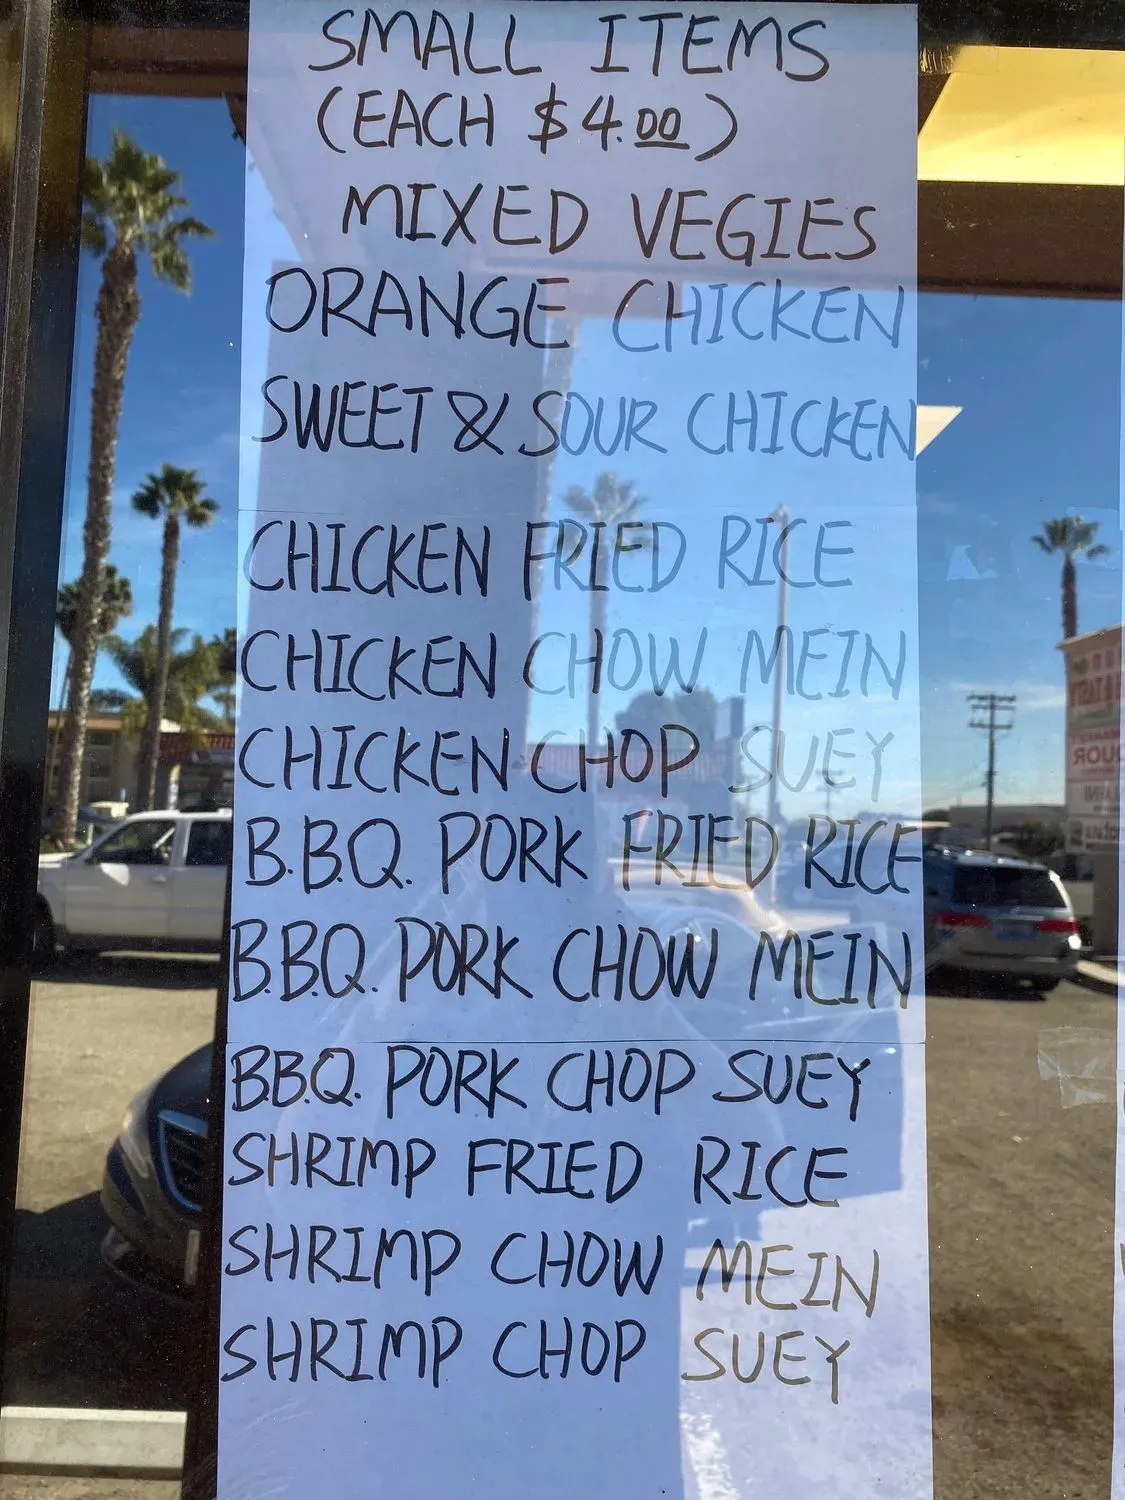 SMALL ITEMS
(EACH $4.00)
MIXED VEGIES
ORANGE CHICKEN
SWEET & SOUR CHICKEN
CHICKEN FRIED RICE
CHICKEN CHOW MEIN
CHICKEN CHOP SUEY
B.B.Q. PORK FRIED RICE
B.B.Q. PORK CHOW MEIN
BB.Q. PORK CHOP SUEY
SHRIMP FRIED RICE
SHRIMP CHOW MEIN
SHRIMP CHOP SUEY